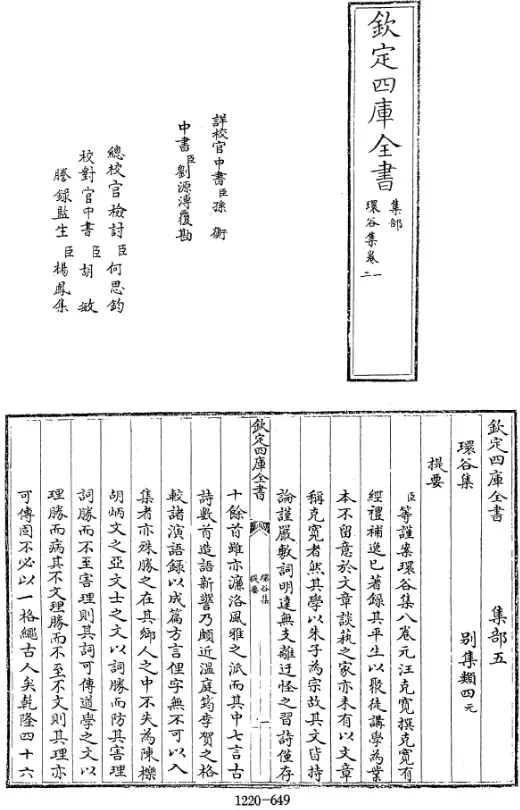 欽定四庫全書
集部
環谷集卷一
二
詳校官中書臣孫衡
中書臣劉源溥覆勘
總校官檢討臣何思鈞
校對官中書臣胡敏
謄錄監生臣楊鳳集
欽定四庫全書　集部五
環谷集　別集類四元
提要
臣等謹案環谷集八卷元汪克寬撰克寬有
經禮補逸已著錄其平生以聚徒講學為業
本不留意於文章談藝之家亦未有以文章
稱克寬者然其學以朱子為宗故其文皆持
論謹嚴敷詞明達無支離迂怪之習詩僅存
欽定四庫全書
環谷集
提要
一
十餘首雖亦濂洛風雅之派而其中七言古
詩數首造語新警乃頗近溫庭筠李賀之格
較諸演語錄以成篇方言俚字無不可以入
集者亦殊勝之在其鄉人之中不失為陳櫟
胡炳文之亞文士之文以詞勝而防其害理
詞勝而不至害理則其詞可傳道學之文以
理勝而病其不文理勝而不至不文則其理亦
可傳固不必以一格繩古人矣乾隆四十六
1220-649